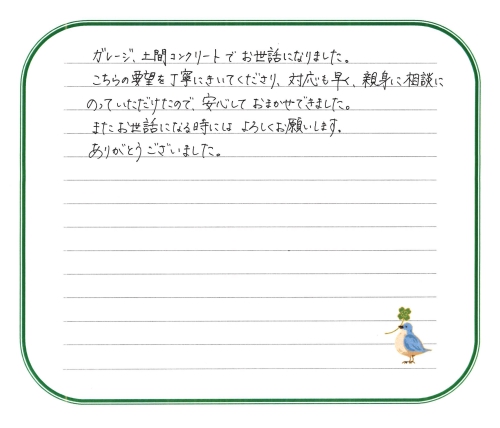 ガレージ、土間コンクリートでお世話になりました。
こちらの要望を丁寧にきいてくださり、対応も早く、親身に相談に
のっていただけたので、安心しておまかせできました。
またお世話になる時にはよろしくお願いします。
ありがとうございました。